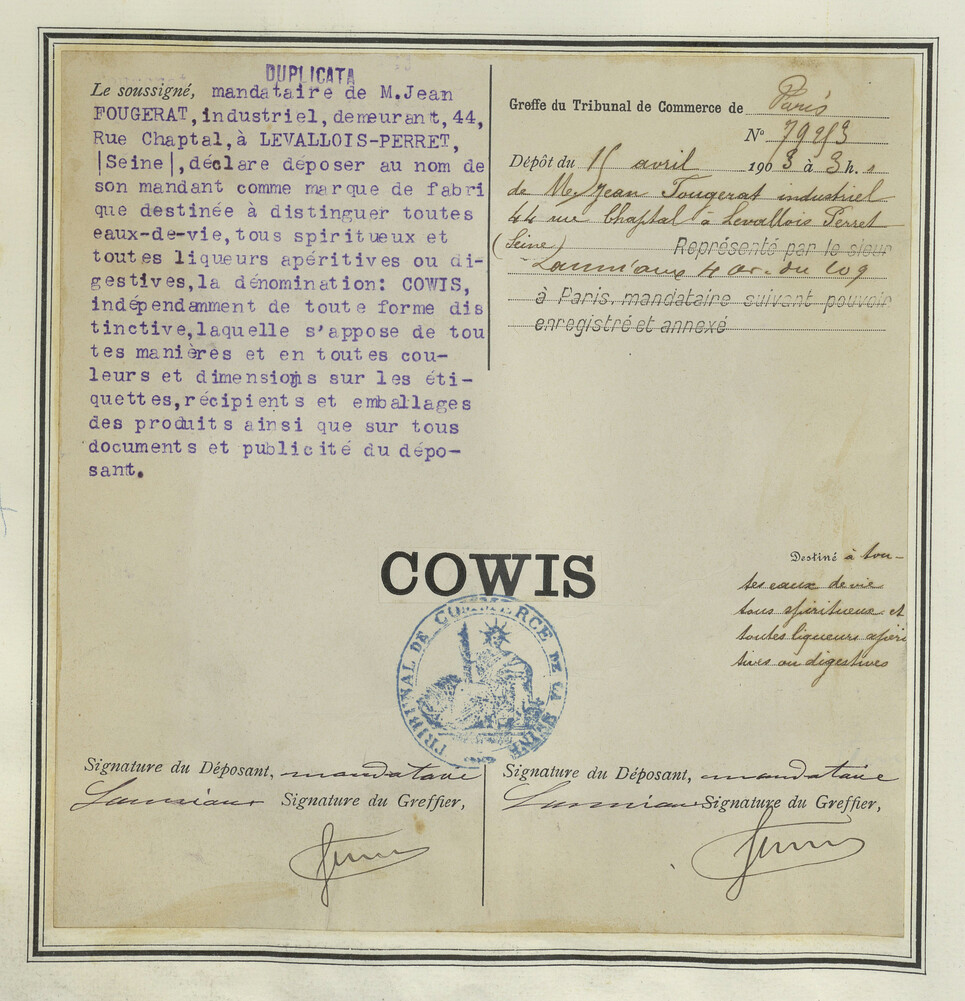 DUPLICATA
Le soussigné, mandataire de M.Jean
FOUGERAT,industriel,demeurant,44,
Rue Chaptal,à LEVALLOIS-PERRET,
|Seine|,déclare déposer au nom de
son mandant comme marque de fabri
que destinée à distinguer toutes
eaux-de-vie,tous spiritueux et
toutes liqueurs apéritives ou di-
gestives,la dénomination: COWIS,
indépendamment de toute forme dis
tinctive,laquelle s'appose de tou
tes manières et en toutes cou-
leurs et dimensions sur les éti-
quettes,récipients et emballages
des produits ainsi que sur tous
documents et publicité du dépo-
sant.
Greffe du Tribunal de Commerce de Paris
N°
Dépôt du 15 avril 1903 à 3 h. s
de M. Jean Fougerat industriel
44 rue Chaptal à Levallois Perret
(Seine) Représenté par le sieur
4 du coq
à Paris, mandataire suivant pouvoir
enregistré et annexé
COWIS
Destiné à tou-
tes eaux de vie
tous spiritueux et
toutes liqueurs apéri
tives ou digestives
TRIBUNAL DE COMMERCE DE LA SEINE
Signature du Déposant, mandataire
Signature du Greffier,
Signature du Déposant, mandataire
Signature du Greffier,